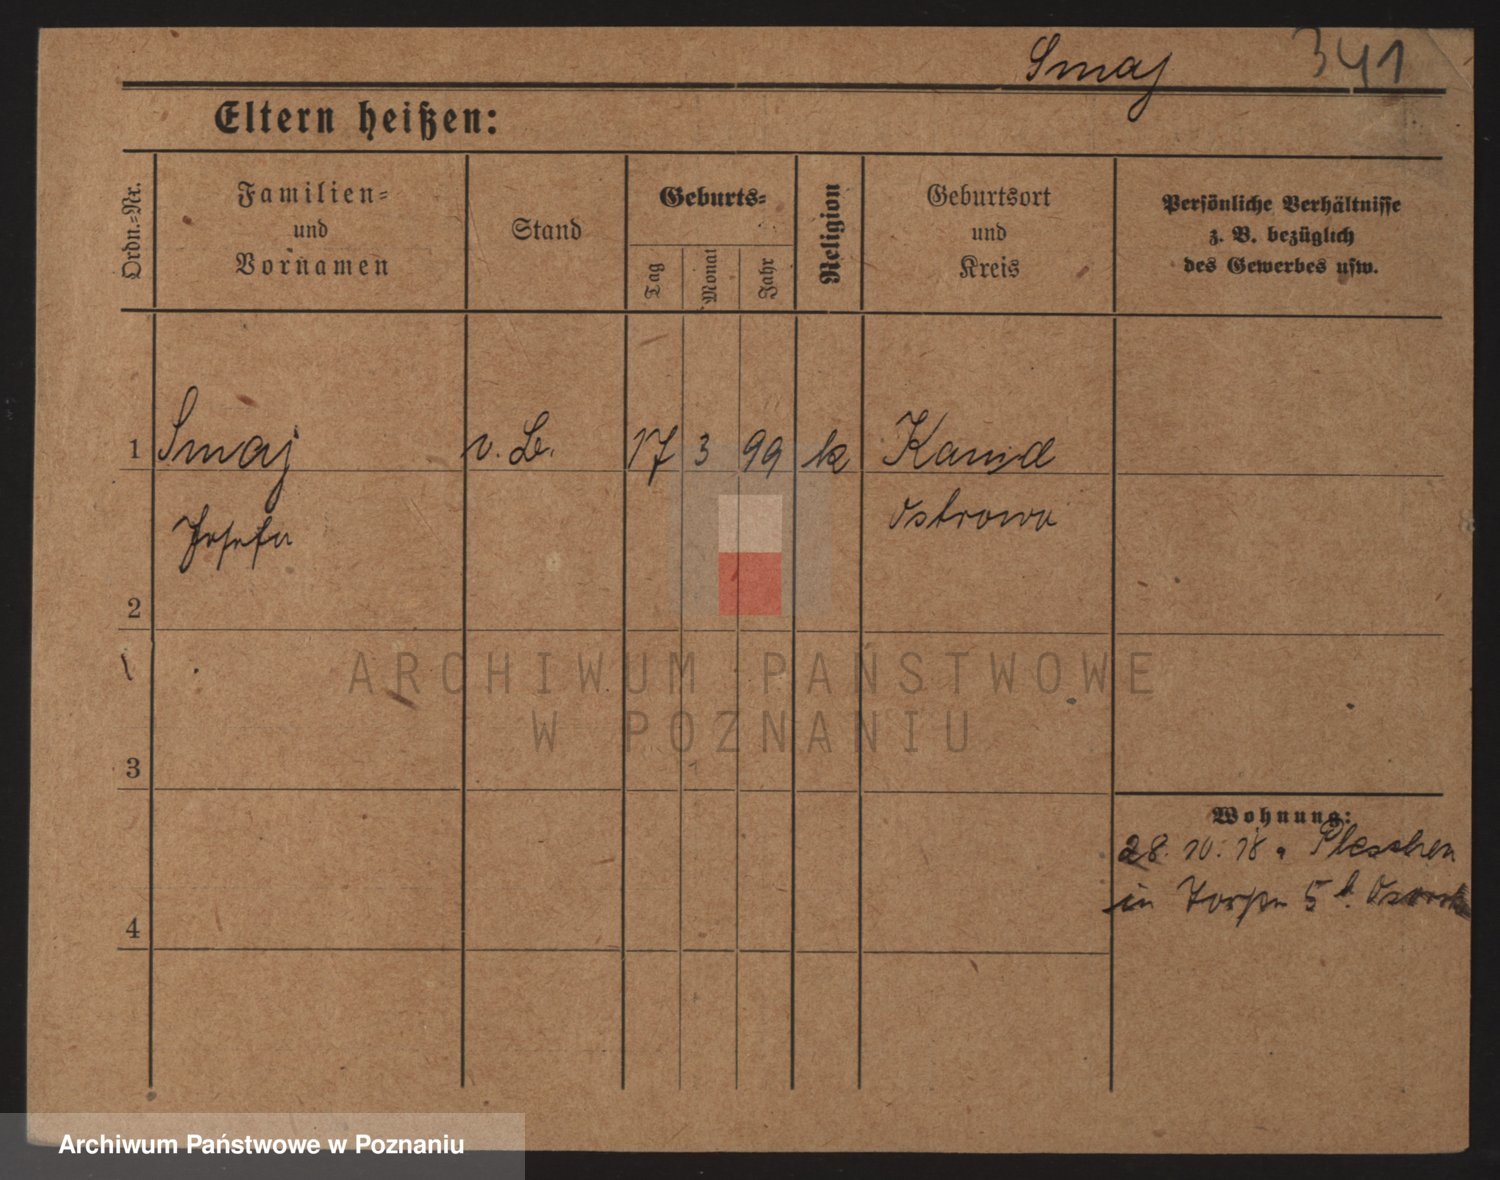 Smaj 341
Eltern heißen:
Ordn.=Nr.
Familien=
und
Vornamen
Stand
Geburts=
Tag
Monat
Jahr
Religion
Geburtsort
und
Kreis
Persönliche Verhältnisse
z. B. bezüglich
des Gewerbes usw.
1 Smaj 17 3 99 k
Josefa Ostrowo
2
3
4
Wohnung:
28. 10. 18 Pleschen
in
ARCHIWUM PAŃSTWOWE
W POZNANIU
Archiwum Państwowe w Poznaniu